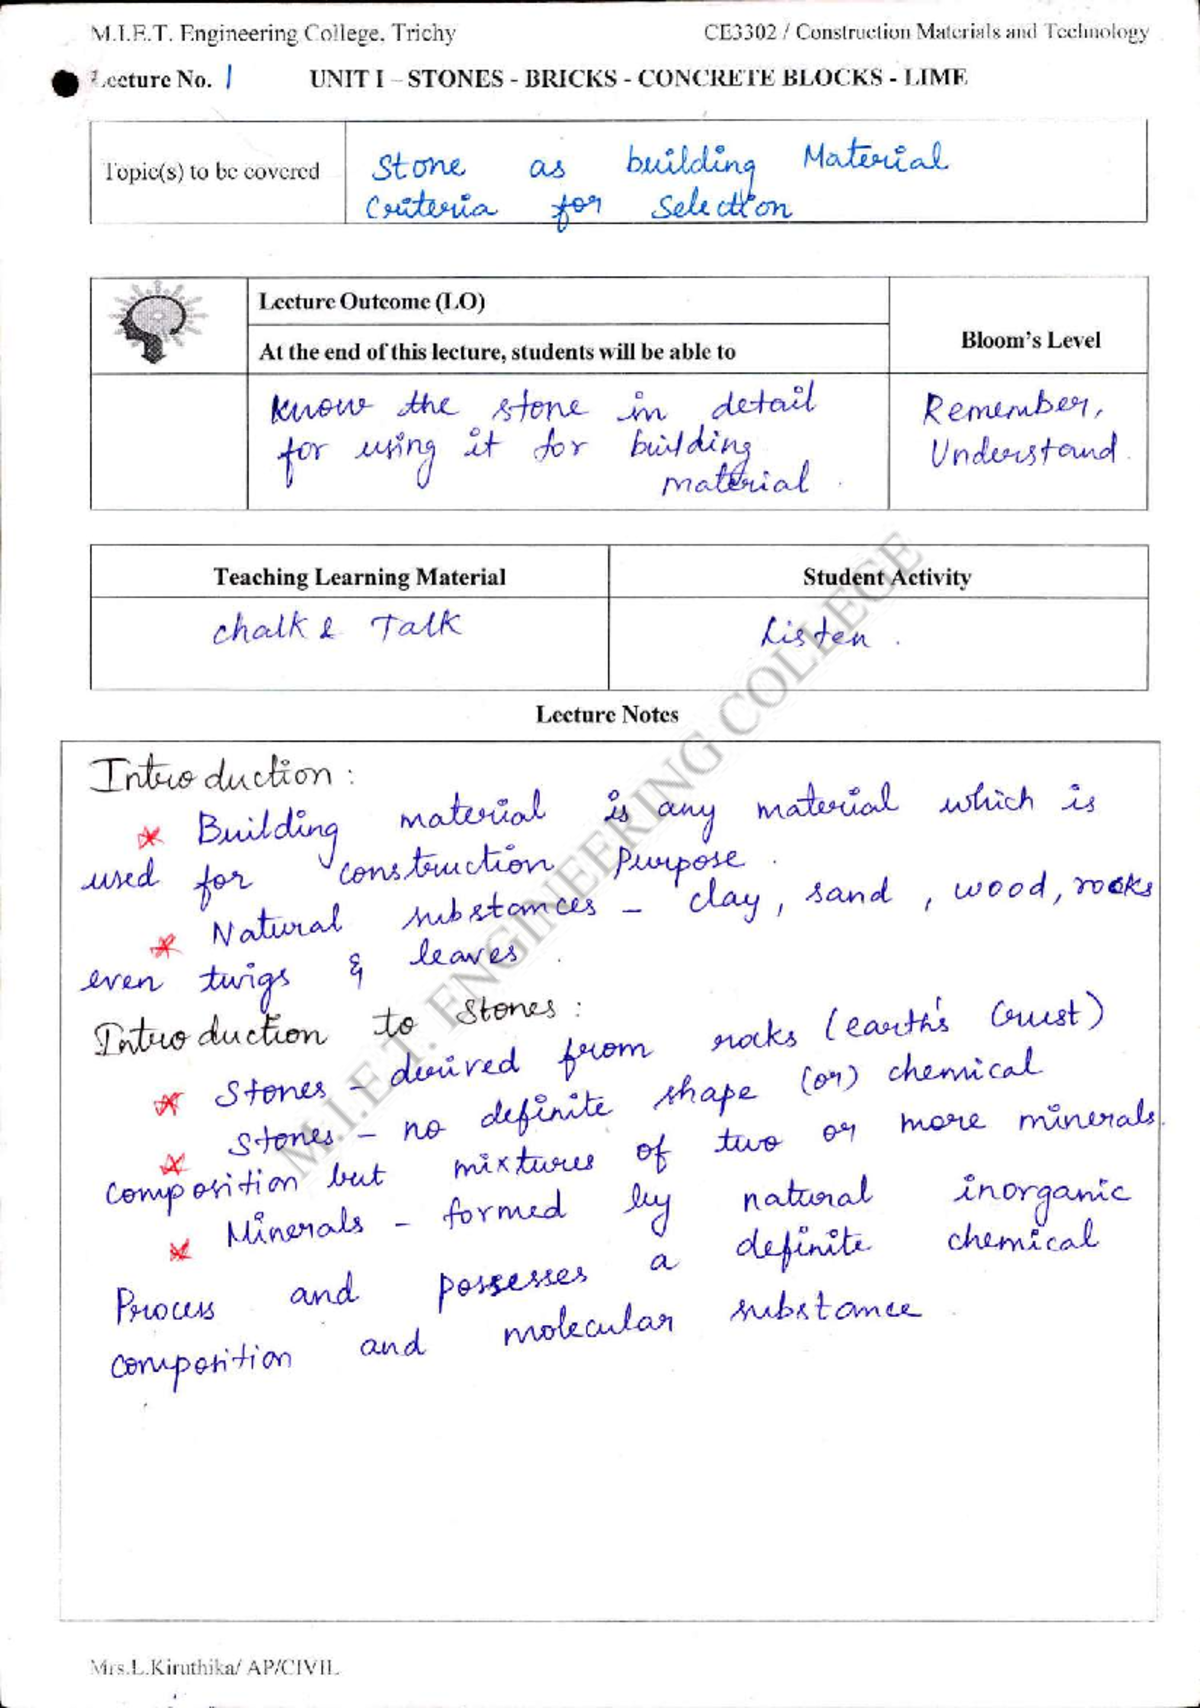 M.I.E.T. Engineering College, Trichy CE3302 / Construction Materials and Technology
Lecture No. 1 UNIT I – STONES - BRICKS - CONCRETE BLOCKS - LIME
Topic(s) to be covered
Stone as building Material
Criteria for Selection
Lecture Outcome (LO)
At the end of this lecture, students will be able to
Bloom's Level
Know the stone in detail
for using it for building
material.
Remember,
Understand.
Teaching Learning Material Student Activity
Chalk & Talk Listen.
Lecture Notes
Introduction:
* Building material is any material which is
used for construction Purpose.
* Natural substances - clay, sand, wood, rocks
even twigs & leaves.
Introduction to Stones:
* Stones - derived from rocks (earth's Crust)
* Stones - no definite shape (or) chemical
composition but mixtures of two or more minerals.
* Minerals - formed by natural inorganic
Process and possesses a definite chemical
composition and molecular substance.
M.I.E.T. ENGINEERING COLLEGE
Mrs.L.Kiruthika/ AP/CIVIL